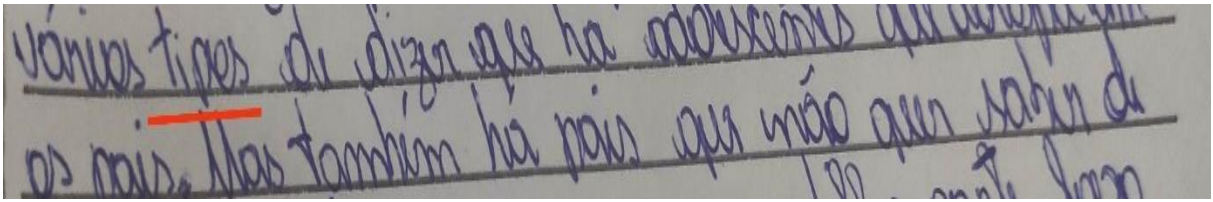 vários tipos de dizer que há adolescentes que
os pais. Mas também há pais que não quer saber de